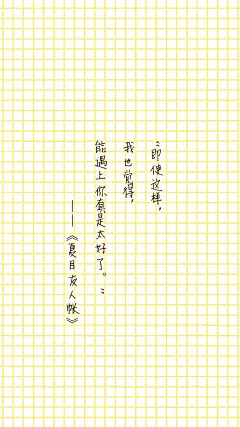 “即使这样，
我也觉得，
能遇上你真是太好了。”
——《夏目友人帐》